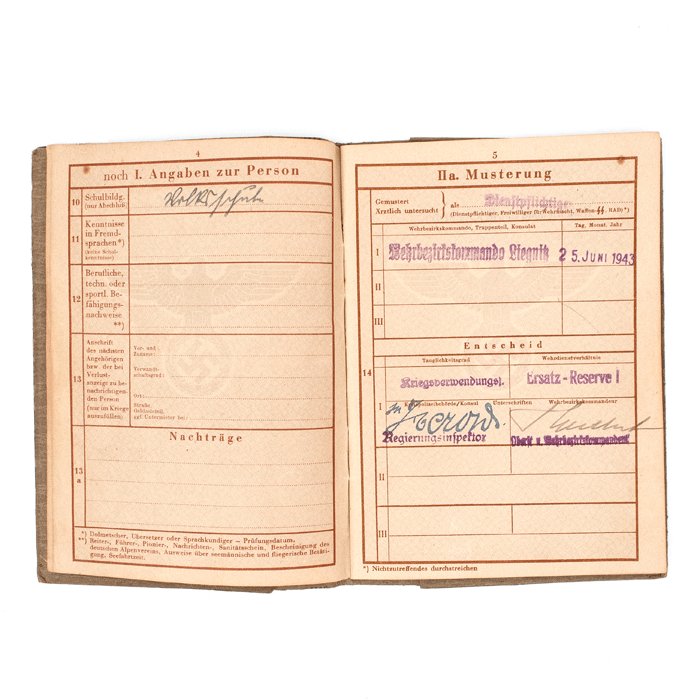 4
noch I. Angaben zur Person
10 Schulbildg.
(nur Abschluß)
Volksschule
11 Kenntnisse
in Fremd-
sprachen*)
(keine Schul-
kenntnisse)
12 Berufliche,
techn. oder
sportl. Be-
fähigungs-
nachweise
**)
13 Anschrift
des nächsten
Angehörigen
bzw. der bei
Verlust-
anzeige zu be-
nachrichtigen-
den Person
(nur im Kriege
auszufüllen)
Vor- und
Zuname:
Verwandt-
schaftsgrad:
Ort:
Straße,
Gebäudeteil,
ggf. Untermieter bei:
Nachträge
13
a
*) Dolmetscher, Übersetzer oder Sprachkundiger – Prüfungsdatum.
**) Reiter-, Führer-, Pionier-, Nachrichten-, Sanitätsschein, Bescheinigung des
deutschen Alpenvereins, Ausweise über seemännische und fliegerische Betäti-
gung, Seefahrtzeit.
5
IIa. Musterung
Gemustert
Ärztlich untersucht
als Dienstpflichtiger
(Dienstpflichtiger, Freiwilliger für Wehrmacht, Waffen-SS RAD)*)
Wehrbezirkskommando, Truppenteil, Konsulat
Tag, Monat, Jahr
I Wehrbezirkskommando Liegnitz 25. JUNI 1943
II
III
Entscheid
14
Tauglichkeitsgrad
Wehrdienstverhältnis
Kriegsverwendungsf.
Ersatz-Reserve I
Kreispolizeibehörde/Konsul Unterschriften Wehrbezirkskommandeur
I
Regierungsinspektor
Oberst u. Wehrbezirkskommandeur
II
III
*) Nichtzutreffendes durchstreichen